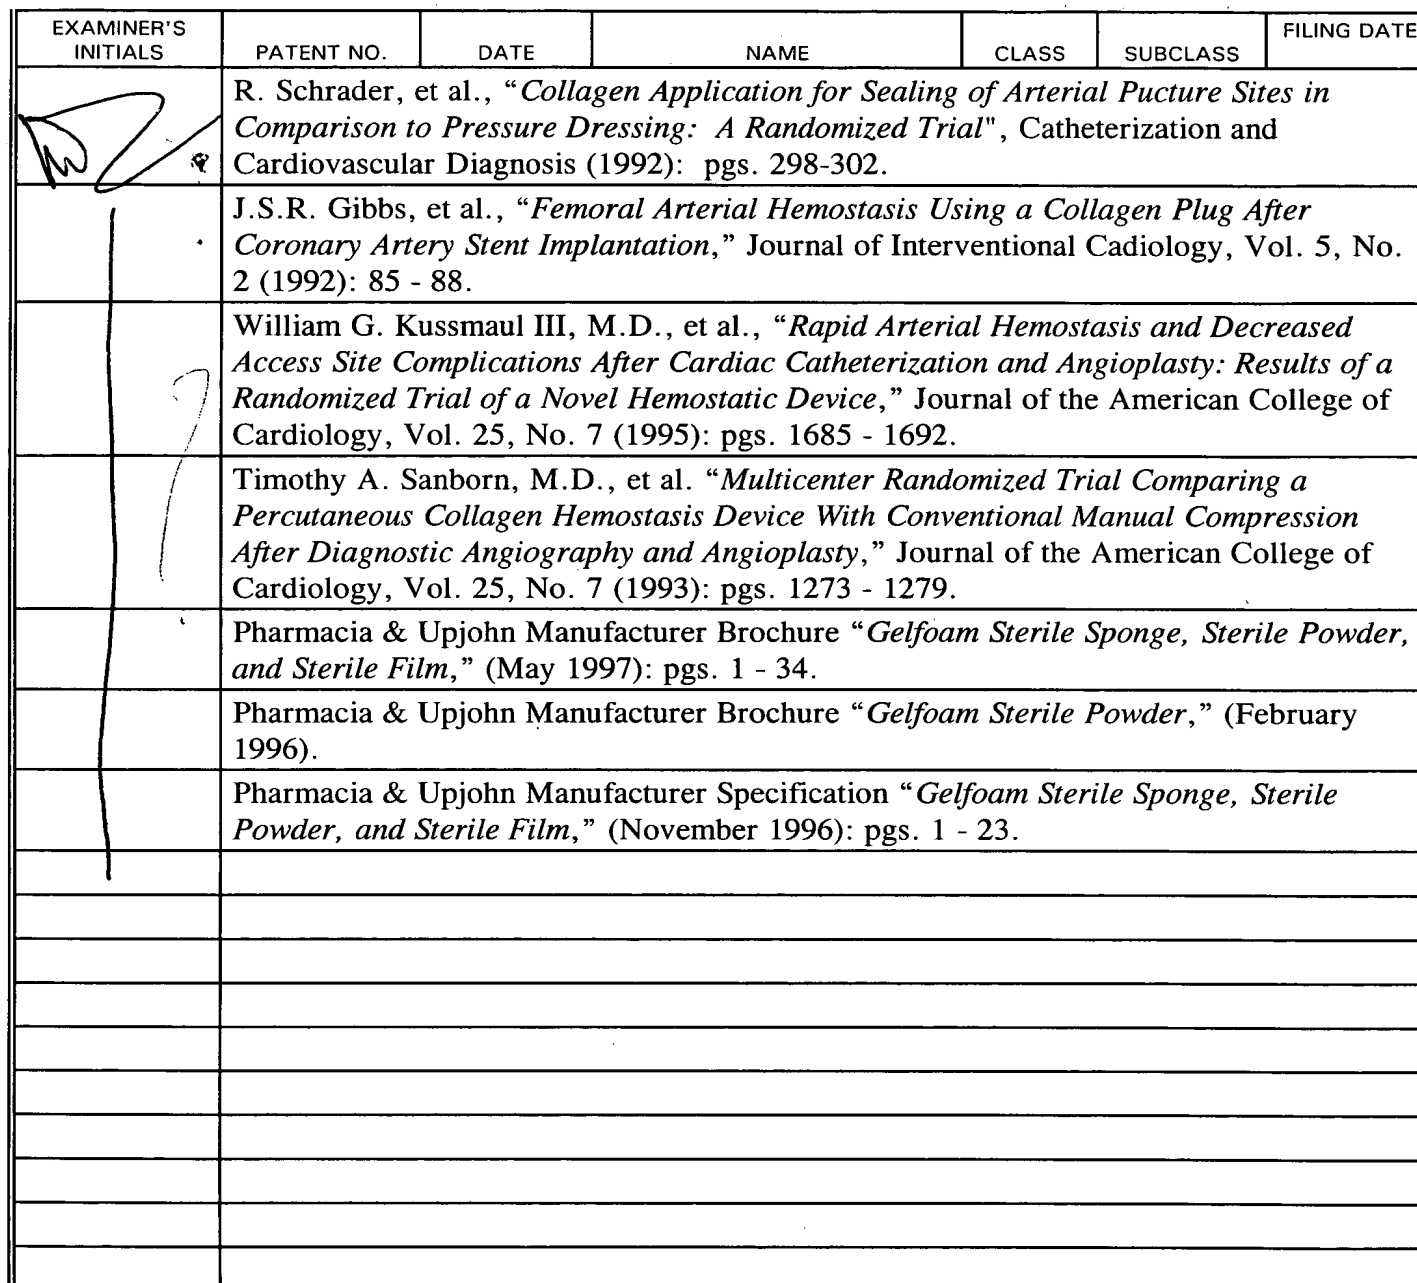 EXAMINER'S
INITIALS
PATENT NO.
DATE
NAME
CLASS
SUBCLASS
FILING DATE
R. Schrader, et al., “Collagen Application for Sealing of Arterial Pucture Sites in
Comparison to Pressure Dressing: A Randomized Trial", Catheterization and
Cardiovascular Diagnosis (1992): pgs. 298-302.
J.S.R. Gibbs, et al., “Femoral Arterial Hemostasis Using a Collagen Plug After
Coronary Artery Stent Implantation,” Journal of Interventional Cadiology, Vol. 5, No.
2 (1992): 85 - 88.
William G. Kussmaul III, M.D., et al., “Rapid Arterial Hemostasis and Decreased
Access Site Complications After Cardiac Catheterization and Angioplasty: Results of a
Randomized Trial of a Novel Hemostatic Device,” Journal of the American College of
Cardiology, Vol. 25, No. 7 (1995): pgs. 1685 - 1692.
Timothy A. Sanborn, M.D., et al. “Multicenter Randomized Trial Comparing a
Percutaneous Collagen Hemostasis Device With Conventional Manual Compression
After Diagnostic Angiography and Angioplasty,” Journal of the American College of
Cardiology, Vol. 25, No. 7 (1993): pgs. 1273 - 1279.
Pharmacia & Upjohn Manufacturer Brochure “Gelfoam Sterile Sponge, Sterile Powder,
and Sterile Film,” (May 1997): pgs. 1 - 34.
Pharmacia & Upjohn Manufacturer Brochure “Gelfoam Sterile Powder,” (February
1996).
Pharmacia & Upjohn Manufacturer Specification “Gelfoam Sterile Sponge, Sterile
Powder, and Sterile Film,” (November 1996): pgs. 1 - 23.